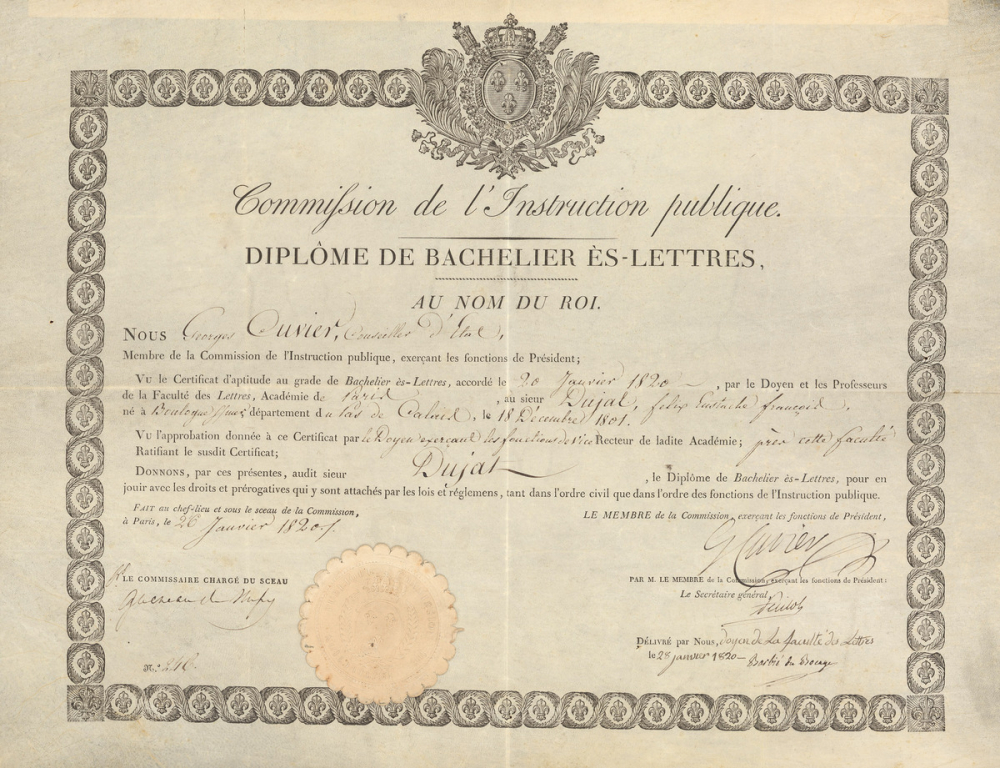 Commission de l'Instruction publique.
DIPLÔME DE BACHELIER ÈS-LETTRES,
AU NOM DU ROI.
NOUS Georges Cuvier, Conseiller d'Etat,
Membre de la Commission de l'Instruction publique, exerçant les fonctions de Président;
VU le Certificat d'aptitude au grade de Bachelier ès-Lettres, accordé le 20 Janvier 1820 , par le Doyen et les Professeurs
de la Faculté des Lettres, Académie de Paris , au sieur Dujat, felix Eustache françois,
né à Boulogne département du pas de Calais, le 18 Décembre 1801.
VU l'approbation donnée à ce Certificat par le Doyen exerçant les fonctions de vice Recteur de ladite Académie; près cette faculté
Ratifiant le susdit Certificat;
DONNONS, par ces présentes, audit sieur Dujat , le Diplôme de Bachelier ès-Lettres, pour en
jouir avec les droits et prérogatives qui y sont attachés par les lois et réglemens, tant dans l'ordre civil que dans l'ordre des fonctions de l'Instruction publique.
FAIT au chef-lieu et sous le sceau de la Commission,
à Paris, le 26 Janvier 1820.
LE MEMBRE de la Commission, exerçant les fonctions de Président,
G Cuvier
LE COMMISSAIRE CHARGÉ DU SCEAU
PAR M. LE MEMBRE de la Commission, exerçant les fonctions de Président:
Le Secrétaire général,
DÉLIVRÉ par Nous, doyen de La faculté des Lettres
le 28 janvier 1820 - Barbié du Bocage
N.°